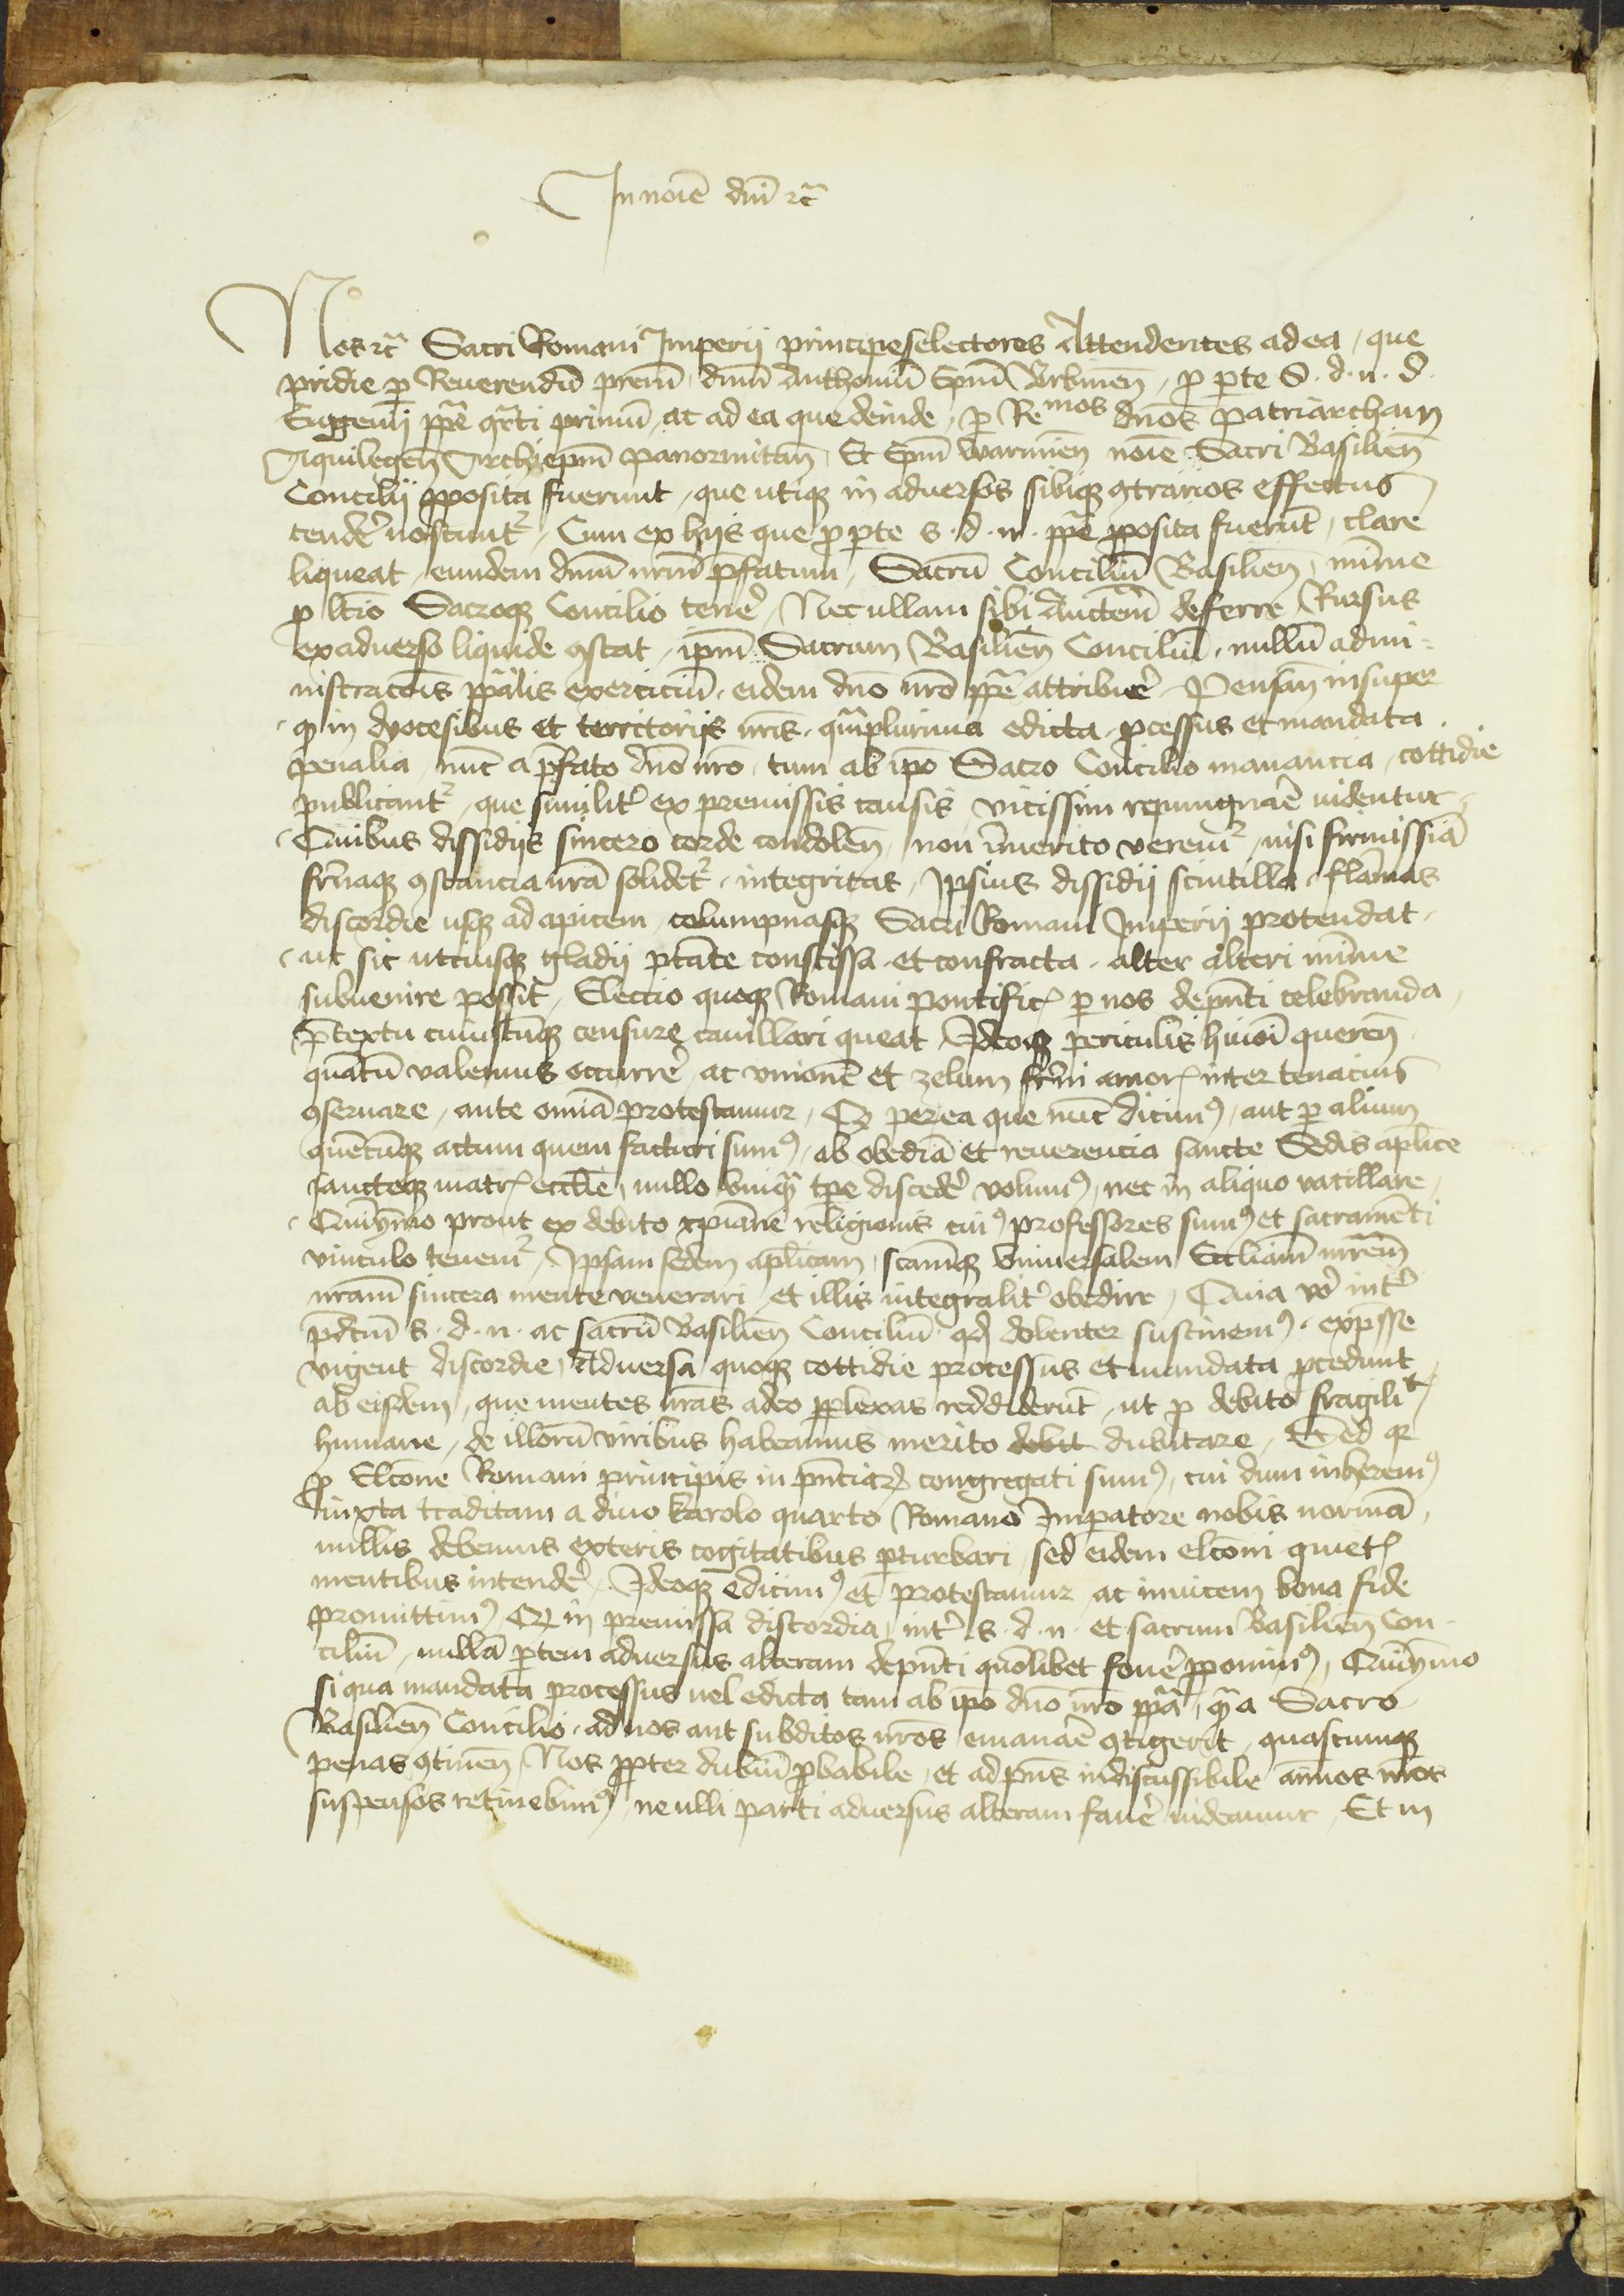 In noīe dnī ⁊c̃
Nos ⁊c̃ Sacri Romani Imperij principes electores Attendentes ad ea / que
pridie ꝑ Reuerendū prēm / dnm̄ Anthoniū Epm̄ Vrbineñ / ꝓ ꝑte S. d. n. d.
Eugenij pp̄e qrti primū / ac ad ea que deinde / ꝑ Reᵐᵒˢ dnōs Patriarcham
Aquilegeñ Archiepm̄ Panormitañ Et Epm̄ Warmieñ noīe Sacri Basilieñ
Concilij ꝓposita fuerunt / que utiqꝫ in aduersos sibiqꝫ ꝯtrarios effectus
tendẽ noscunt̉ / Cum ex hijs que ꝓ ꝑte s. d. n. pp̄e ꝓposita fuerūt / clare
liqueat / eundem dnm̄ nrm̄ p̄fatum / Sacrū Conciliū Basilieñ / mīme
ꝓ ltīo Sacroqꝫ Concilio tenẽ / Nec ullam sibi Auctem̄ deferre Rursus
ex aduerso liquide ꝯstat / ipm̄ Sacrum Basilieñ Conciliū / nullū admi-
nistracōis pp̄alis exerciciū / eidem dnō nrō pp̄e attribuẽ / Pensañ insuper
ꝙ in dyocesibus et territorijs nrīs / qm̄plurima edicta / ꝓcessus et mandata
penalia / nūc a p̄fato dnō nrō / tum ab ipō Sacro Concilio manancia / cottidie
publicant̉ / que similit̉ ex premissis causis vicissim repungnaē uidentur /
Quibus dissidijs sincero corde condoleñ / non īmerito verem̉ / nisi firmissiā
fr̄naqꝫ ꝯstancia nrā solidet̉ / integritas / Ipsius dissidij scintilla / flāmas
discordie usqꝫ ad apicem / columpnasqꝫ Sacri Romani Imperij protendat /
ut sic utriusqꝫ gladij ptāte conscissa / et confracta / alter alteri mīme
subuenire possit / Electio quoqꝫ Romani Pontific̉ ꝑ nos depn̄ti celebranda /
p̄textu cuiuscūqꝫ censure cauillari queat Ideoqꝫ periculis huiōi quereñ
quātū valemus occurrẽ ac vnionē et zelum fr̄ni amor̉ inter tenacius
ꝯseruare / ante omīa protestamur / Qꝫ per ea que nūc dicimꝰ / aut ꝑ alium
quēcūqꝫ actum quem facturi sumꝰ / ab obediā et reuerencia sancte Sedis aplīce
sancteqꝫ matr̉ ecclīe / nullo vnīqꝫ tp̄e discedẽ volumꝰ / nec in aliquo vacillare /
Quīymo prout ex debito xpiāne religionis cuiꝰ professores sumꝰ et sacramēti
vinculo tenem̉ / Ipsam sedem aplīcam / scamqꝫ vniuersalem Eccliam mrēm
nram̄ sincera mente venerari / et illis integralit̉ obedire / Quia vō int̉
p̄dcm̄ s. d. n. ac sacrū Basilieñ Conciliū qd̄ dolenter sustinemꝰ / exp̄sse
vigent discordie / Aduersa quoqꝫ cottidie processus et mandata ꝓcedunt
ab eisdem / que mentes nrās adeo ꝑplexas reddiderūt / ut ꝓ debito fragilit̉
humane / de illorū viribus habeamus merito debit dubitare / Sed qꝛ
ꝓ Elcōne Romani principis in pn̄ciaꝝ congregati sumꝰ / cui dum inheremꝰ
iuxta traditam a diuo karolo quarto Romano Imꝑatore nobis normā /
nullis debemus exteris cogitatibus ꝑturbari / sed eīdem elcōni quiet̉
mentibus intendẽ / Ideoqꝫ edicimꝰ et protestamur ac inuicem bona fide
promittimꝰ Qꝙ in premissa discordia / int̉ s. d. n. et sacrum Basilieñ Con-
ciliū / nullā ꝑtem aduersus alteram depn̄ti quōlibet fouẽ ꝓponimꝰ / Quīymo
si qua mandata processus uel edicta tam ab ipō dnō nrō pp̄a / qm̄ a Sacro
Basilieñ Concilio / ad nos aut subditos nrōs emanaē ꝯtigerit / quascumqꝫ
penas ꝯtineñ / Nos ꝓpter dubiū ꝓbabile / et ad pn̄s indiscussibile aīmos nrōs
suspensos retinebimꝰ / ne ulli parti aduersus alteram fauẽ uideamur / Et in